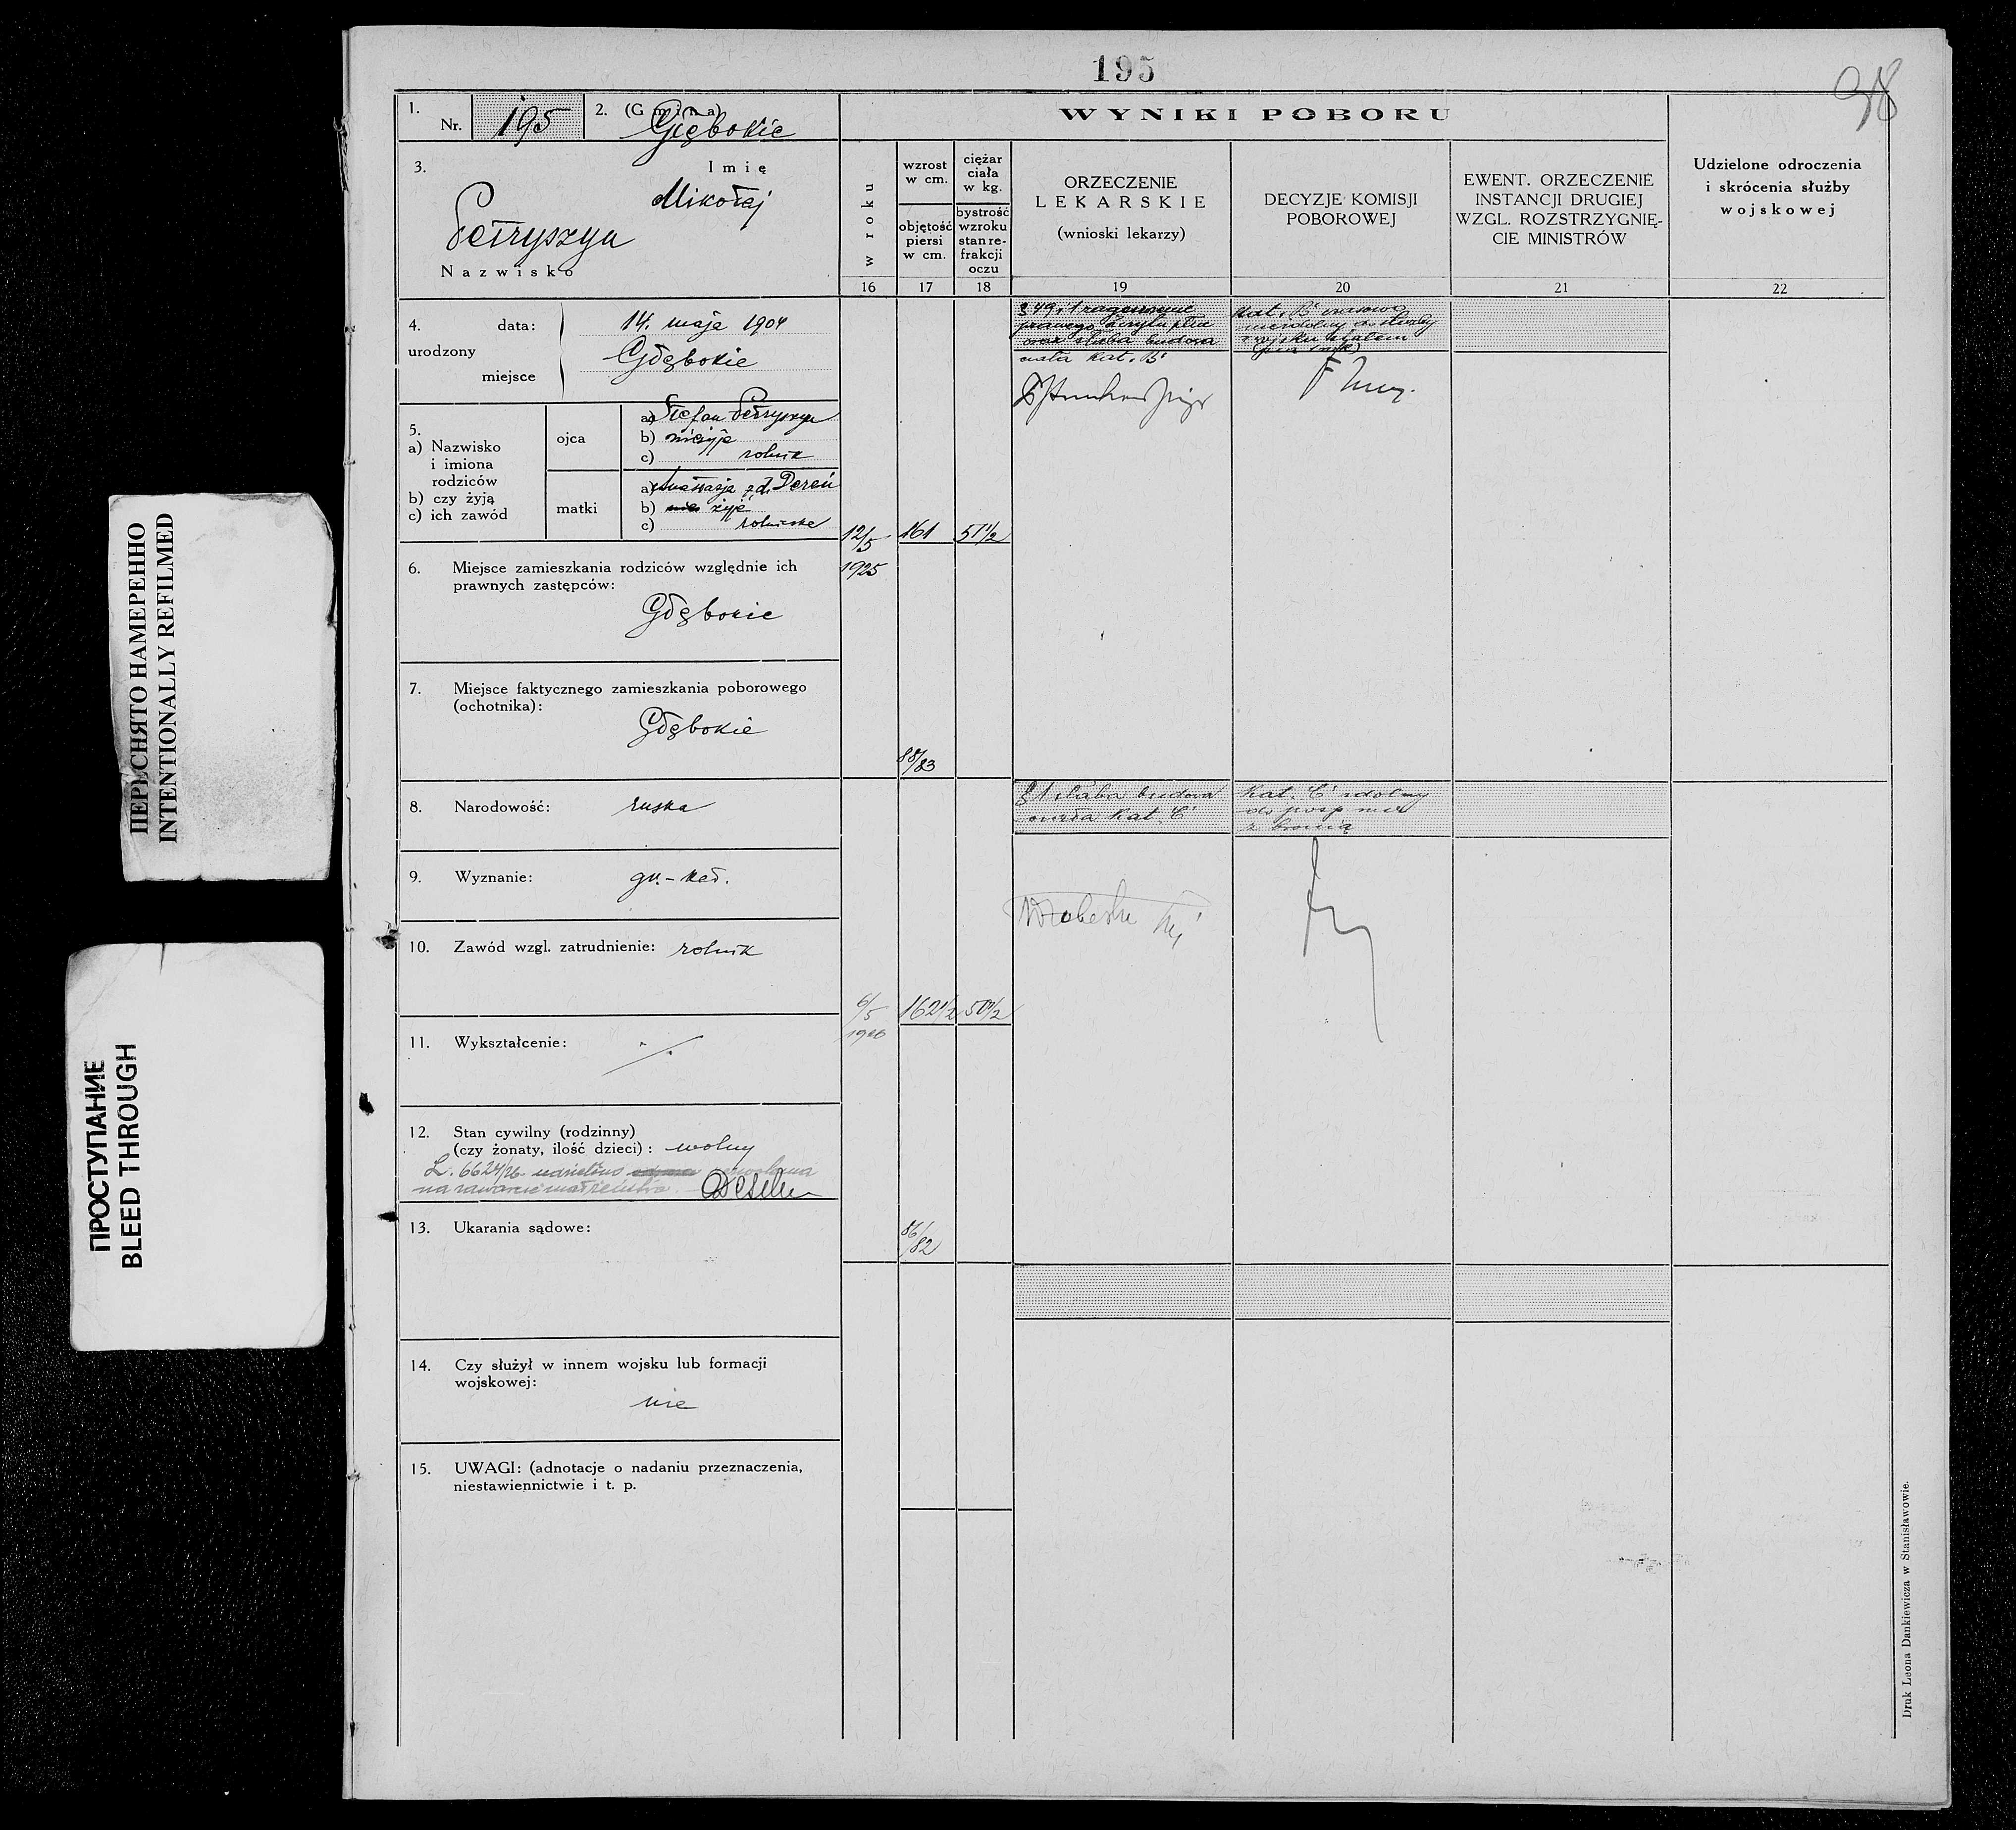 195
98
1.
Nr. 195
2. (Gmina)
Głębokie
3.
Imię
Mikołaj
Petryszyn
Nazwisko
WYNIKI POBORU
w roku
wzrost
w cm.
objętość
piersi
w cm.
ciężar
ciała
w kg.
bystrość
wzroku
stan re-
frakcji
oczu
ORZECZENIE
LEKARSKIE
(wnioski lekarzy)
DECYZJE KOMISJI
POBOROWEJ
EWENT. ORZECZENIE
INSTANCJI DRUGIEJ
WZGL. ROZSTRZYGNIĘ-
CIE MINISTRÓW
Udzielone odroczenia
i skrócenia służby
wojskowej
16 17 18 19 20 21 22
4. data: 14. maja 1904
urodzony
Głębokie
miejsce
5.
a) Nazwisko
i imiona
rodziców
b) czy żyją
c) ich zawód
ojca
a) Stefan Petryszyn
b) nieżyje
c) rolnik
matki
a) Anastazja z d. Dereń
b) nie żyje
c) rolniczka
6. Miejsce zamieszkania rodziców względnie ich
prawnych zastępców:
Głębokie
7. Miejsce faktycznego zamieszkania poborowego
(ochotnika):
Głębokie
8. Narodowość: ruska
9. Wyznanie: gr.-kat.
10. Zawód wzgl. zatrudnienie: rolnik
11. Wykształcenie: ./.
12. Stan cywilny (rodzinny)
(czy żonaty, ilość dzieci): wolny
L. 6624/26 udzielono
na zawarcie małżeństwa
13. Ukarania sądowe:
14. Czy służył w innem wojsku lub formacji
wojskowej:
nie
15. UWAGI: (adnotacje o nadaniu przeznaczenia,
niestawiennictwie i t. p.
12/5 161 57 1/2
1925
88/83
prawego szczytu płuc
oraz słaba budowa
ciała kat. B
Kat. B czasowo
niezdolny do służby
6/5 162 1/2 50 1/2
1926
86/82
§ 1 słaba budowa
ciała Kat. C
Kat. C zdolny
do posp. rusz.
z bronią
Druk Leona Dankiewicza w Stanisławowie.
ПЕРЕСНЯТО НАМЕРЕННО
INTENTIONALLY REFILMED
ПРОСТУПАНИЕ
BLEED THROUGH